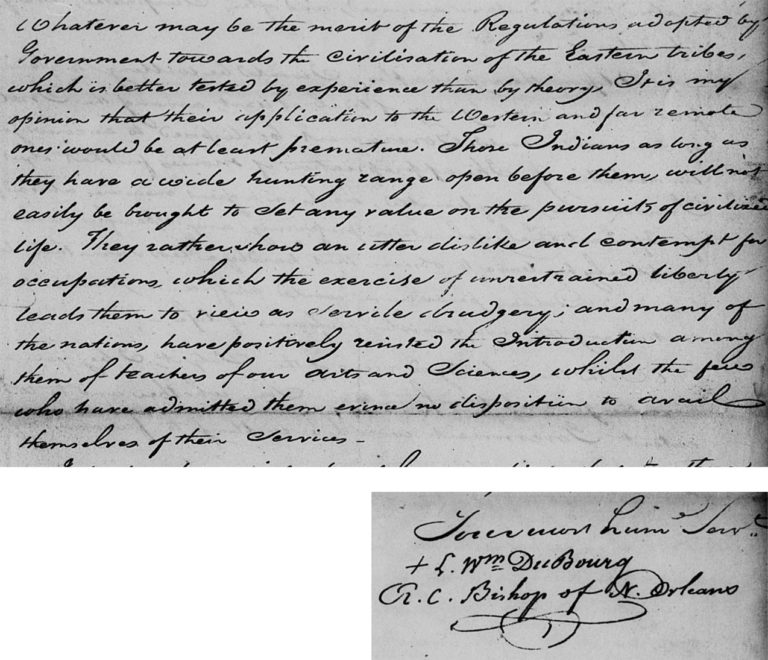 Whatever may be the merit of the Regulations adopted by
Government towards the civilisation of the Eastern tribes,
which is better tested by experience than by theory, It is my
opinion that their application to the Western and far remote
ones would be at least premature. Those Indians as long as
they have a wide hunting range open before them, will not
easily be brought to set any value on the pursuits of civilized
life. They rather show an utter dislike and contempt for
occupations, which the exercise of unrestrained liberty
leads them to view as servile drudgery; and many of
the nations, have positively resisted the Introduction among
them of teachers of our Arts and Sciences, whilst the few
who have admitted them evince no disposition to avail
themselves of their Services -
Your most hum^e Serv^t
+ L. W^m DuBourg
R. C. Bishop of N. Orleans